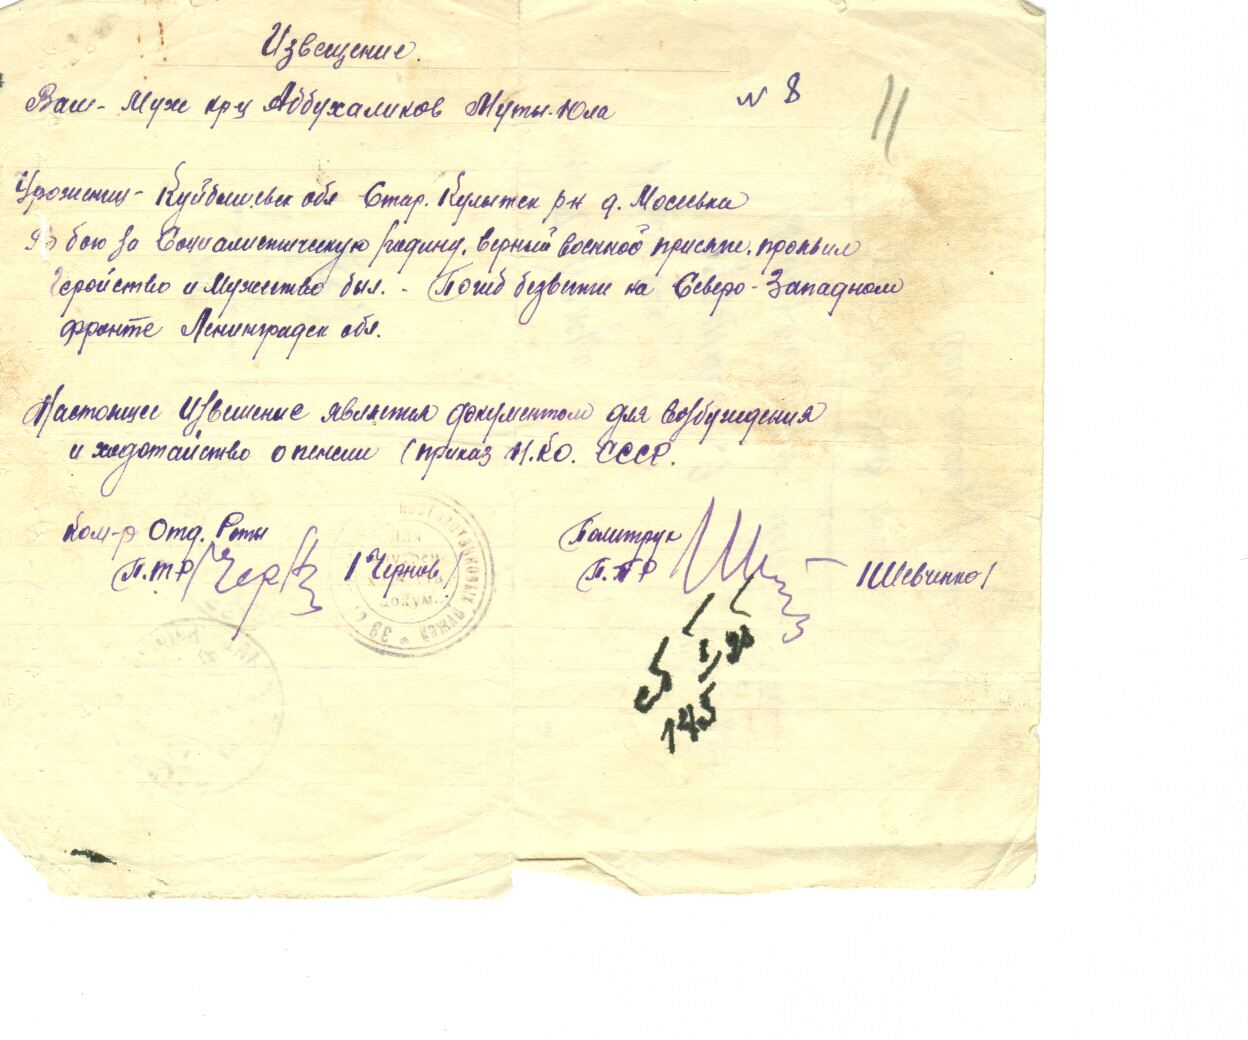 Извещение.
Ваш - Муж кр-ц Аббухаликов Муты-Юла № 8 11
Уроженец - Куйбышевск обл Стар. Кулытск р-н д. Мосеевка
В бою за Социалистическую родину, верный военной присяге, проявил
Геройство и Мужество был. - Погиб безвести на Северо-Западном
фронте Ленинградск обл.
Настоящее Извешение является документом для возбуждения
и ходотайство о пенсии (приказ Н.КО. СССР.
Ком-р Отд. Роты
П.Т.Р /Чернов/
Политрук
П.Т.Р /Шевченко/
противотанковых ружей * 39
Для
докум.
145